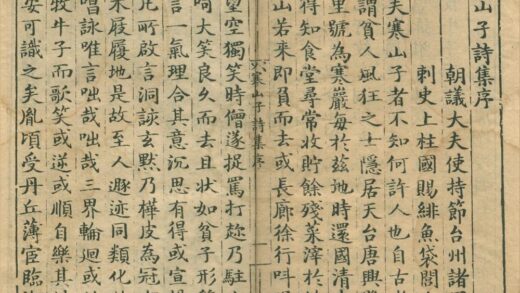 山子詩集序
朝議大夫使持節台州諸
刺史上柱國賜緋魚袋閭
夫寒山子者不知何許人也自古
謂貧人風狂之士隱居天台唐興
里號為寒巖每於茲地時還國清
得知食堂尋常收貯餘殘菜滓於
山若來即負而去或長廊徐行叫
寒山子詩集序
一
望空獨笑時僧遂捉罵打趂乃駐
呵大笑良久而去且狀如貧子形
言一氣理合其意沉思有得或宣
所啟言洞該玄默乃樺皮為冠
木屐履地是故至人遯迹同類化
唱詠唯言咄哉咄哉三界輪迴或
牧牛子而歌笑或逆或順自樂其
安可識之矣胤頃受丹丘薄宦臨